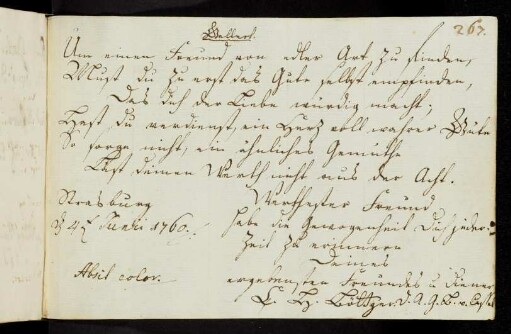 Gellert.
267.
Um einen Freund von edler Art zu finden,
Must du zuerst das Gute selbst empfinden,
Das dich der Liebe würdig macht;
Hast du verdienst, ein Herz voll wahrer Güte
So sorge nicht, ein ähnliches Gemüthe
Läst deinen Werth nicht aus der Acht.
Strasburg
d 4 Junii 1760.
Absit color.
Werthester Freund
habe die Gewogenheit Dich jeder-
zeit zu erinnern
Deines
ergebensten Freundes u Diener
Böttger. d. A. G. B. v.